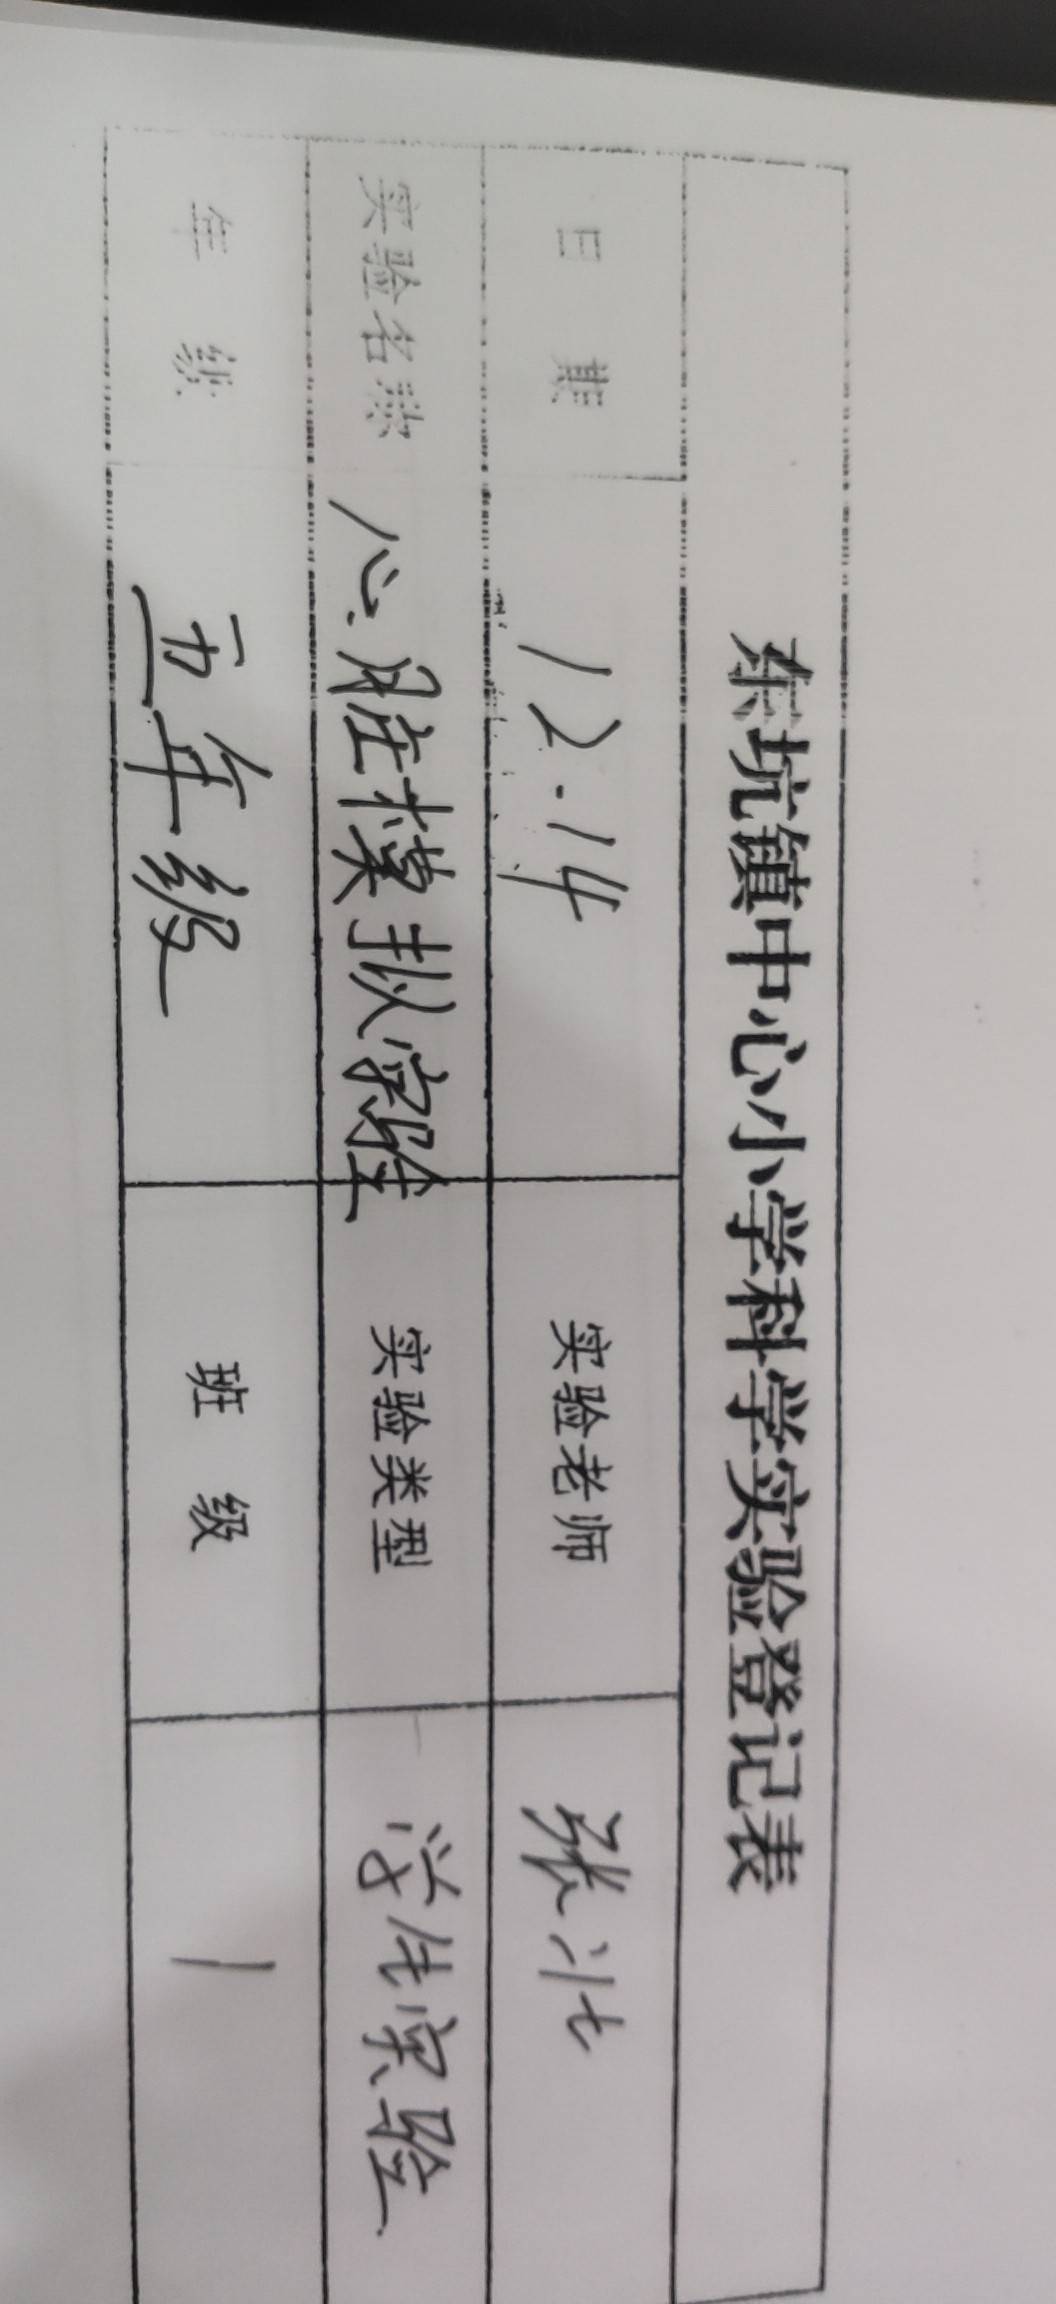 东坑镇中心小学科学实验登记表
日 期 12.14 实验老师 张北
实验名称 心脏模拟实验 实验类型 学生实验
年 级 五年级 班 级 1